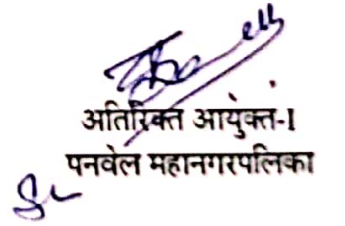 अतिरिक्त आयुक्त-I
पनवेल महानगरपालिका